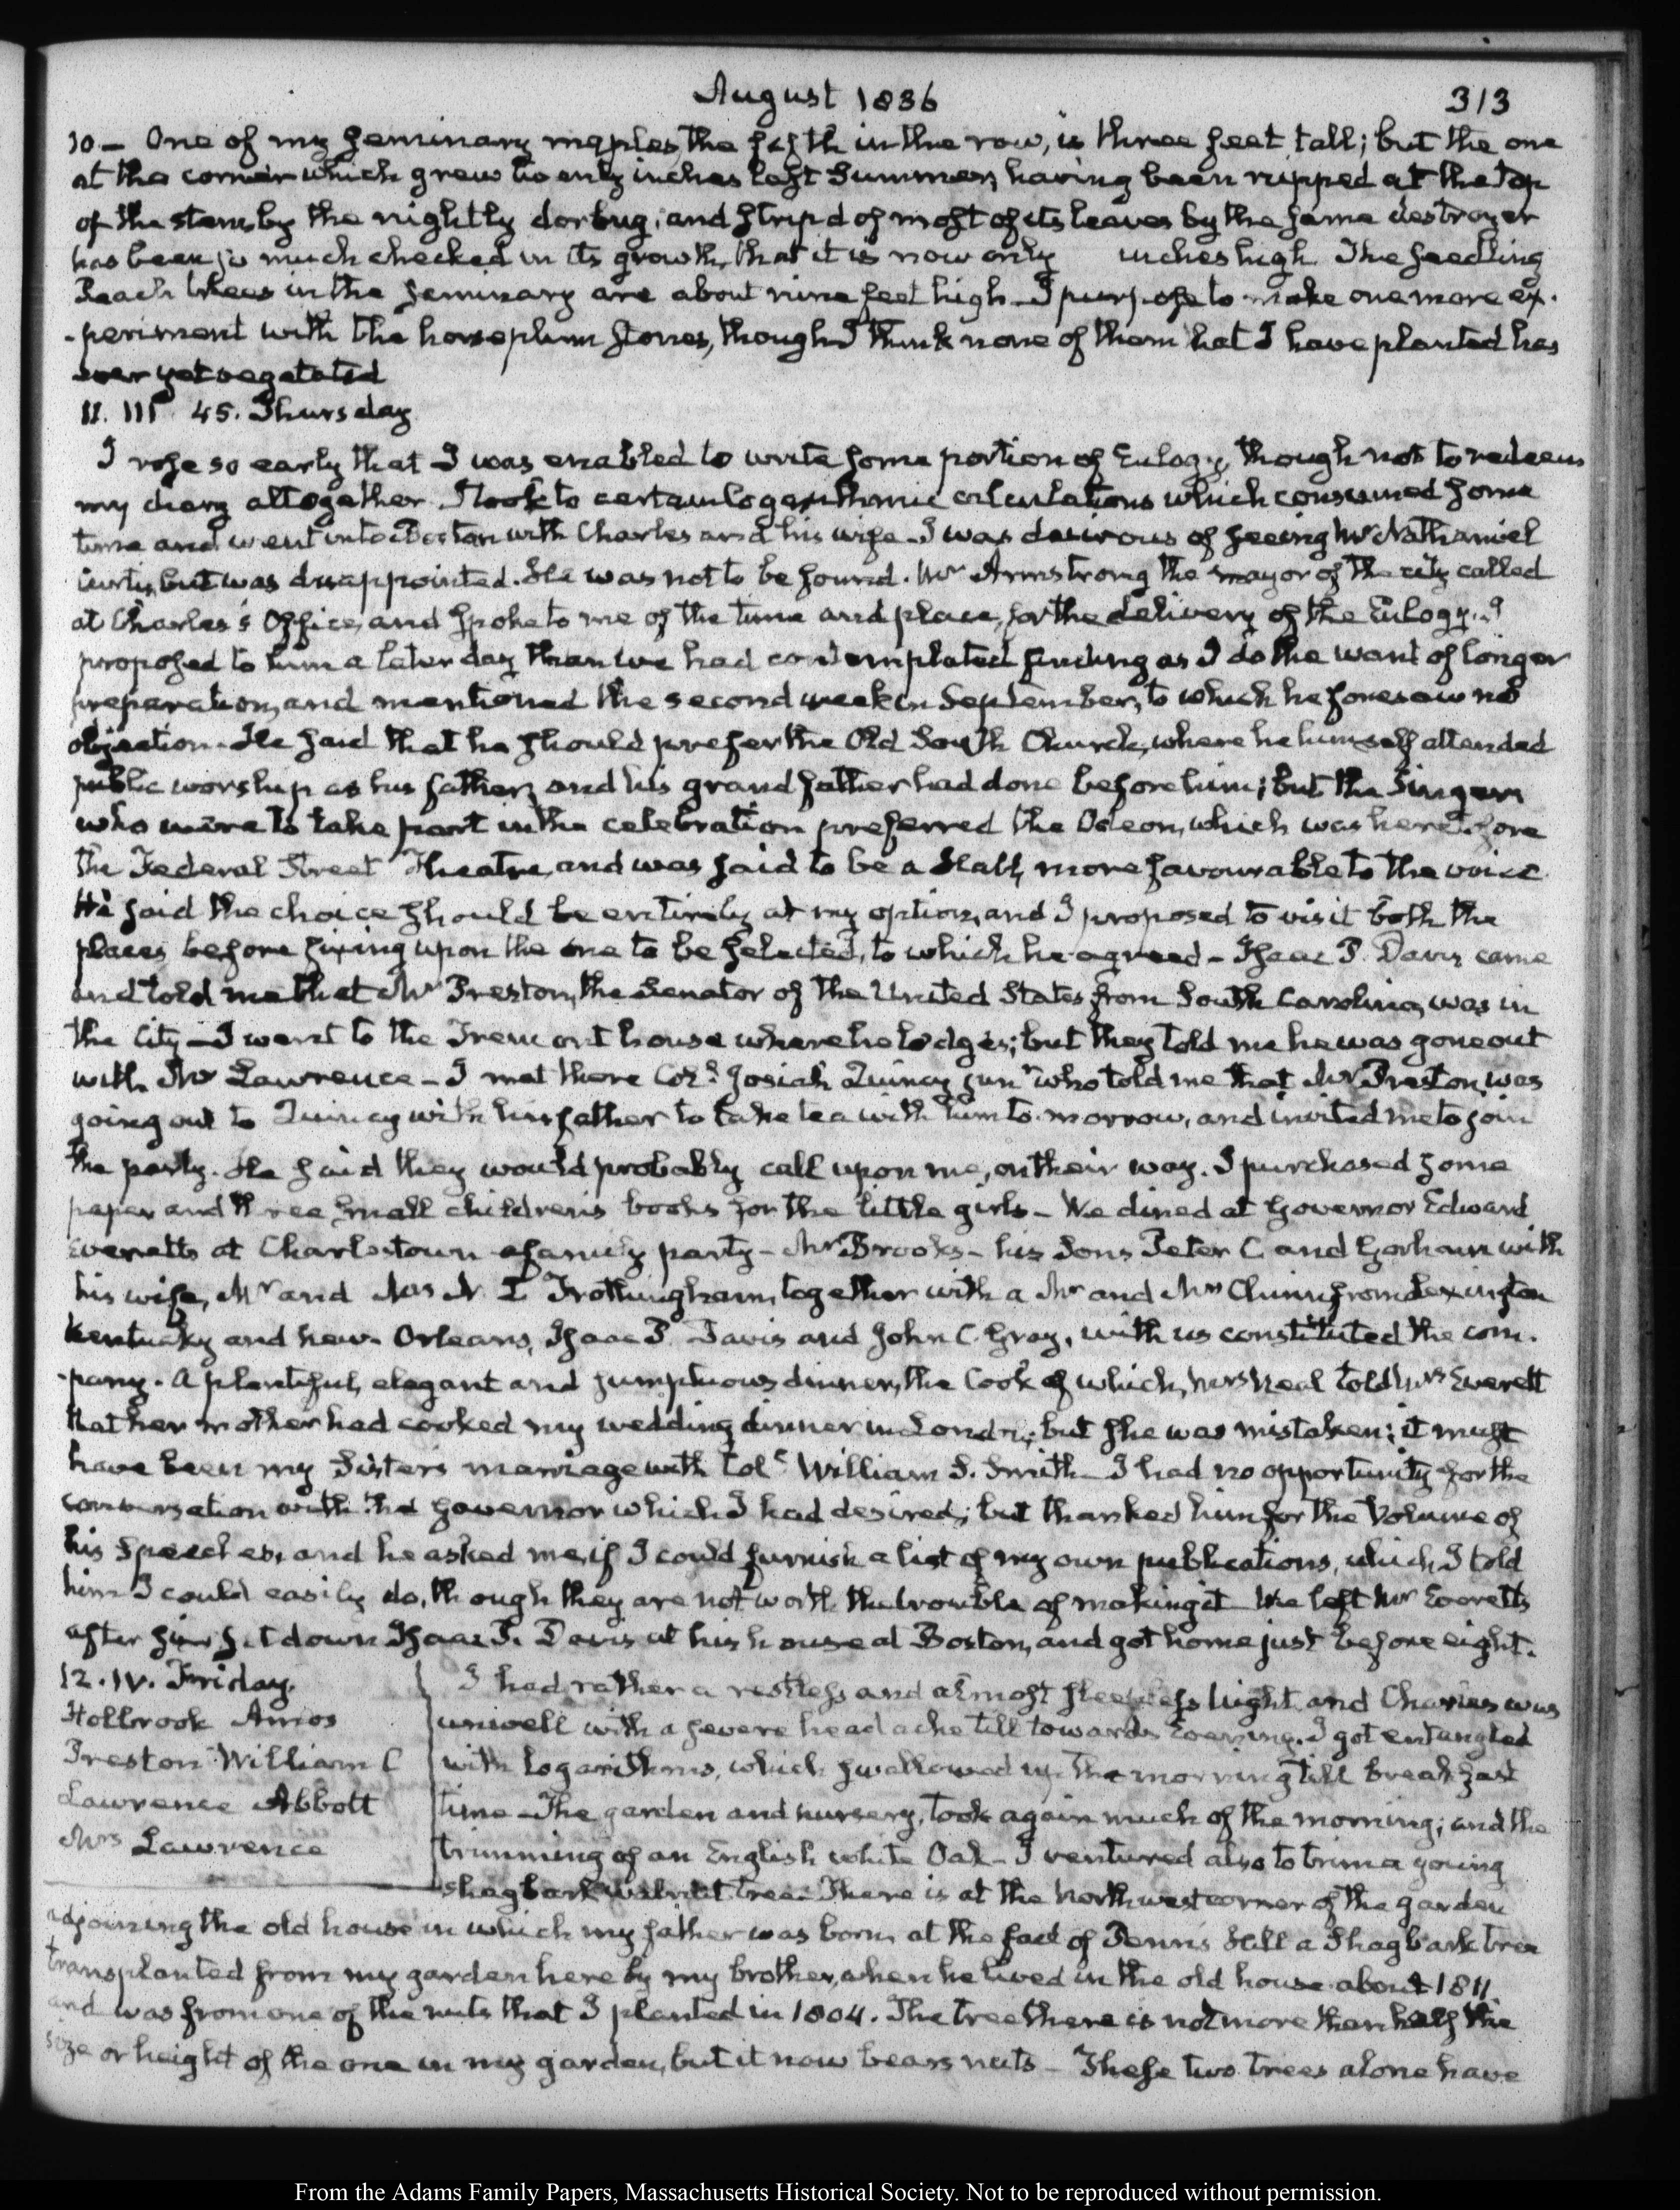 August 1836 313
10 — One of my seminary maples, the fifth in the row, is three feet tall; but the one
at the corner which grew twenty inches last Summer, having been nipped at the top
of the stem, by the nightly dorbug, and strip'd of most of its leaves by the same destroyer
has been so much checked in its growth, that it is now only inches high. The seedling
Peach trees in the seminary are about nine feet high — I purpose to make one more ex-
-periment with the horseplum stones, though I think none of them that I have planted has
ever yet vegetated
11. III. 45. Thursday
I rose so early that I was enabled to write some portion of Eulogy, though not to redeem
my diary altogether. I took to certain logarithmic calculations which consumed some
time and went into Boston with Charles and his wife — I was desirous of seeing Mr Nathaniel
Curtis, but was disappointed. He was not to be found. Mr Armstrong the mayor of the city called
at Charles's Office, and spoke to me of the time and place, for the delivery of the Eulogy. I
proposed to him a later day than we had contemplated finding as I do the want of longer
preparation, and mentioned the second week in September, to which he foresaw no
objection. He said that he should prefer the Old South Church, where he himself attended
public worship as his father, and his grandfather had done before him; but the Singers
who were to take part in the celebration preferred the Odeon, which was heretofore
the Federal Street Theatre, and was said to be a Hall, more favourable to the voice
He said the choice should be entirely at my option, and I proposed to visit both the
places before fixing upon the one to be selected, to which he agreed — Isaac P. Davis came
and told me that Mr Preston, the Senator of the United States from South Carolina, was in
the City — I went to the Tremont house where he lodges; but they told me he was gone out
with Mr Lawrence — I met there Col. Josiah Quincy junr who told me that Mr Preston, was
going out to Quincy with his father to take tea with him to-morrow, and invited me to join
the party. He said they would probably call upon me, on their way. I purchased some
paper and three small children's books for the little girls — We dined at Governor Edward
Everett's at Charlestown a family party — Mr Brooks — his Sons Peter C. and Gorham with
his wife, Mr and Mrs N. L Frothingham, together with a Mr and Mrs Chinn from Lexington
Kentucky and New-Orleans, Isaac P. Davis and John C. Gray, with us constituted the com-
-pany. A plentiful, elegant and sumptuous dinner, the Cook of which, Mrs Neal told Mrs Everett
that her mother had cooked my wedding dinner in London; but she was mistaken; it must
have been my Sister's marriage with Col. William S. Smith — I had no opportunity for the
conversation with the Governor which I had desired; but thanked him for the Volume of
his Speeches, and he asked me, if I could furnish a list of my own publications, which I told
him I could easily do, though they are not worth the trouble of making it We left Mr Everett's
after six, set down Isaac P. Davis at his house at Boston, and got home just before eight.
12. IV. Friday.
Holbrook Amos
Preston William C
Lawrence Abbott
Mrs Lawrence
I had rather a restless and almost sleepless Night and Charles was
unwell with a severe head ache till towards Evening. I got entangled
with logarithms, which swallowed up the morning till breakfast
time — The garden and nursery, took again much of the morning; and the
trimming of an English white Oak — I ventured also to trim a young
shagbark walnut tree. There is at the Northwest corner of the garden
adjoining the old house in which my father was born, at the foot of Penn's Hill a Shagbark tree
transplanted from my garden here by my brother, when he lived in the old house about 1811.
and was from one of the nuts that I planted in 1804. The tree there is not more than half the
size or height of the one in my garden, but it now bears nuts — These two trees alone have
From the Adams Family Papers, Massachusetts Historical Society. Not to be reproduced without permission.